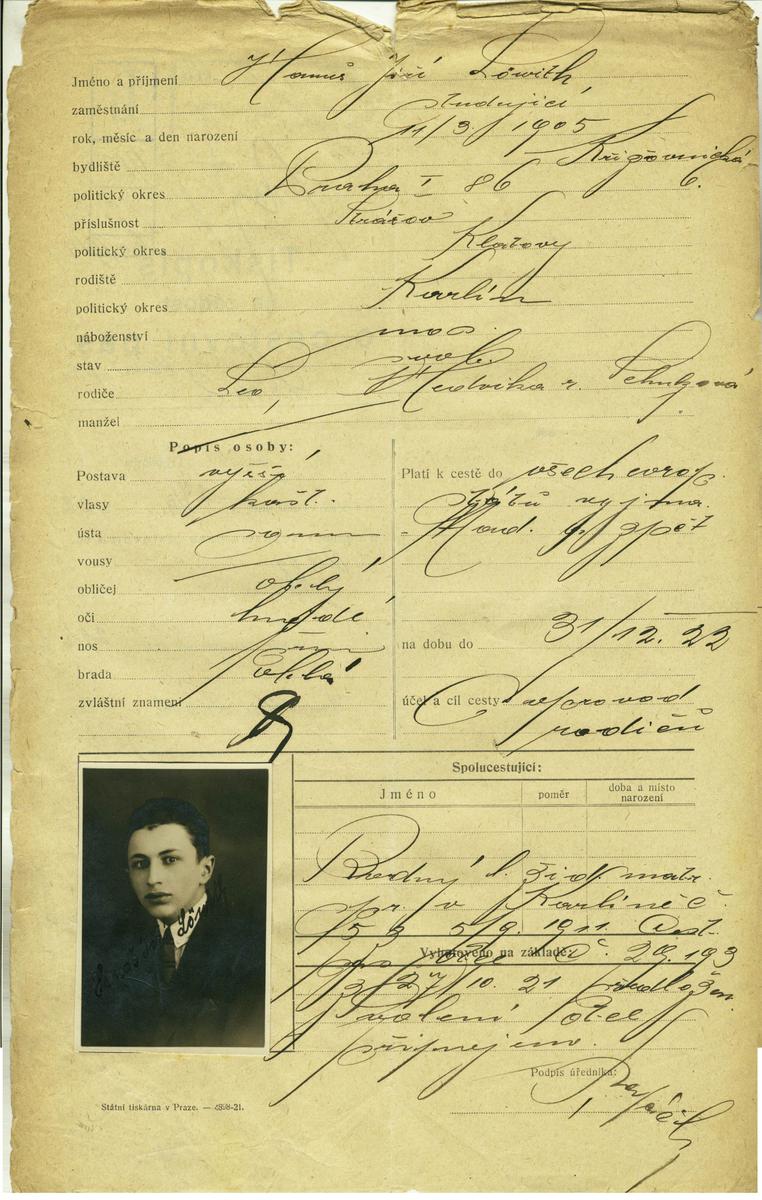 Jméno a příjmení Hanuš Jiří Löwith,
zaměstnání studující
rok, měsíc a den narození 11/3. 1905
bydliště Křižovnická
politický okres Praha I 86 6.
příslušnost Strážov
politický okres Klatovy
rodiště Karlín
politický okres
náboženství mos.
stav svob.
rodiče Leo, Hedvika r. Schulzová
manžel
Popis osoby:
Postava vyšší
vlasy kašt.
ústa
vousy
obličej
oči hnědé
nos
brada
zvláštní znamení
Platí k cestě do všech evrop.
států vyjma
Maď. a zpět
na dobu do 31/12. 22
účel a cíl cesty doprovod
rodičů
Spolucestující:
Jméno poměr doba a místo narození
Rodný l. žid. matr.
v Karlíně č.
5/9. 1911. Cest.
Vyhotoveno na základě: č. 29.193
27/10. 21
svolení
připojeno.
Podpis úředníka:
Státní tiskárna v Praze. — 4898-21.